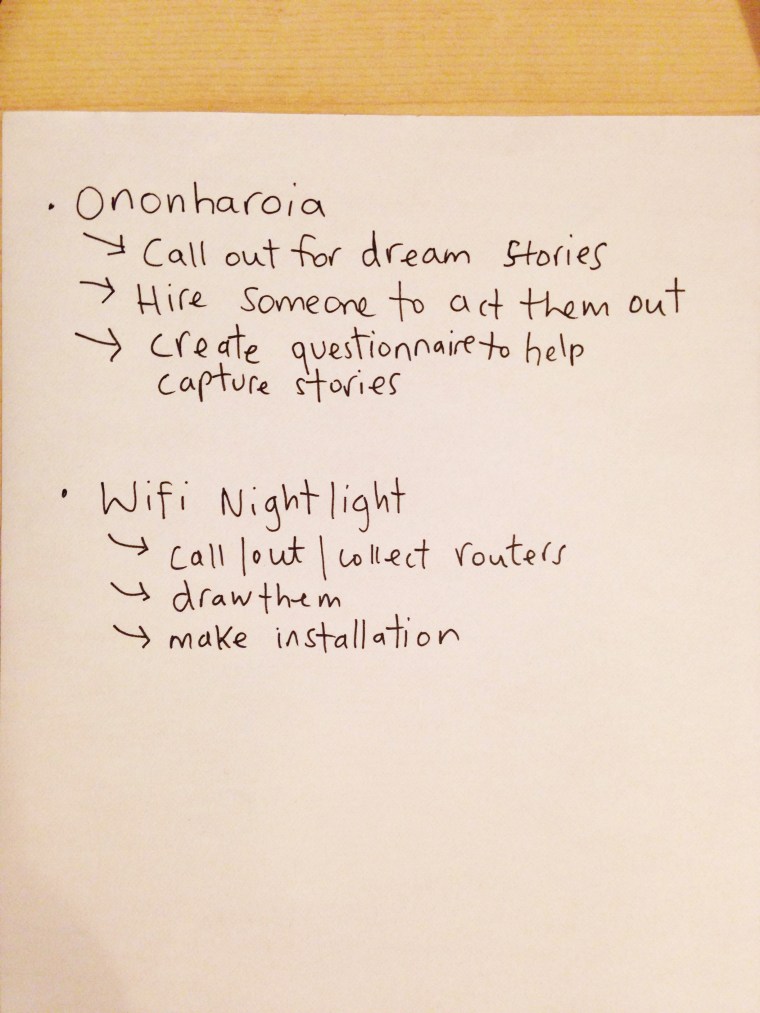 • Ononharoia
→ Call out for dream stories
→ Hire someone to act them out
→ create questionnaire to help
capture stories
• Wifi Nightlight
→ call/out/collect routers
→ draw them
→ make installation